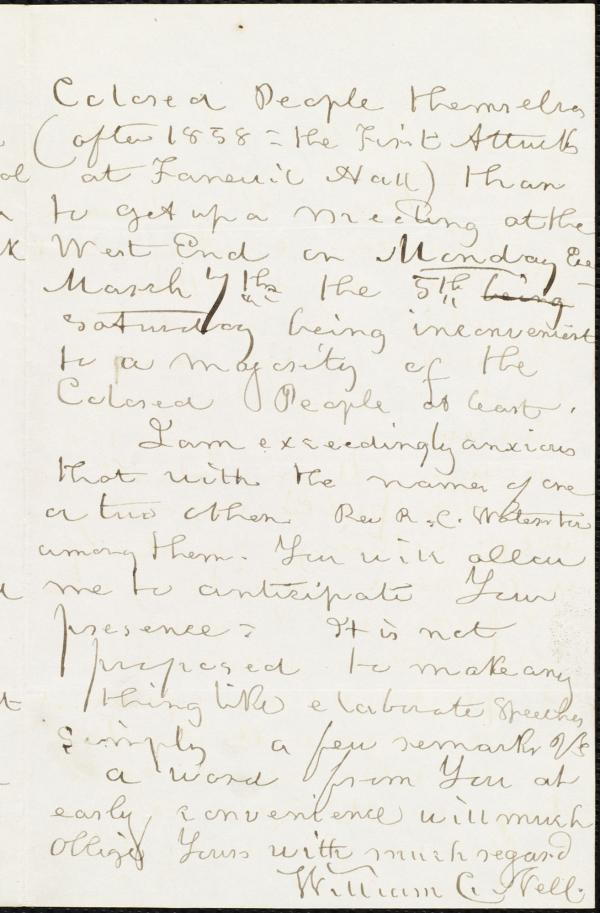 Colored People themselves
(after 1858 = the First Attucks
at Faneuil Hall) than
to get up a meeting at the
West End on Monday Eve
March 7th the 5th being
Saturday being inconvenient
to a majority of the
Colored People at least.
I am exceedingly anxious
that with the names of one
or two others Rev R. C. Waterston
among them. You will allow
me to anticipate Your
presence = It is not
proposed to make any
thing like elaborate speeches
simply a few remarks &c
a word from You at
early convenience will much
oblige Yours with much regard
William C. Nell.